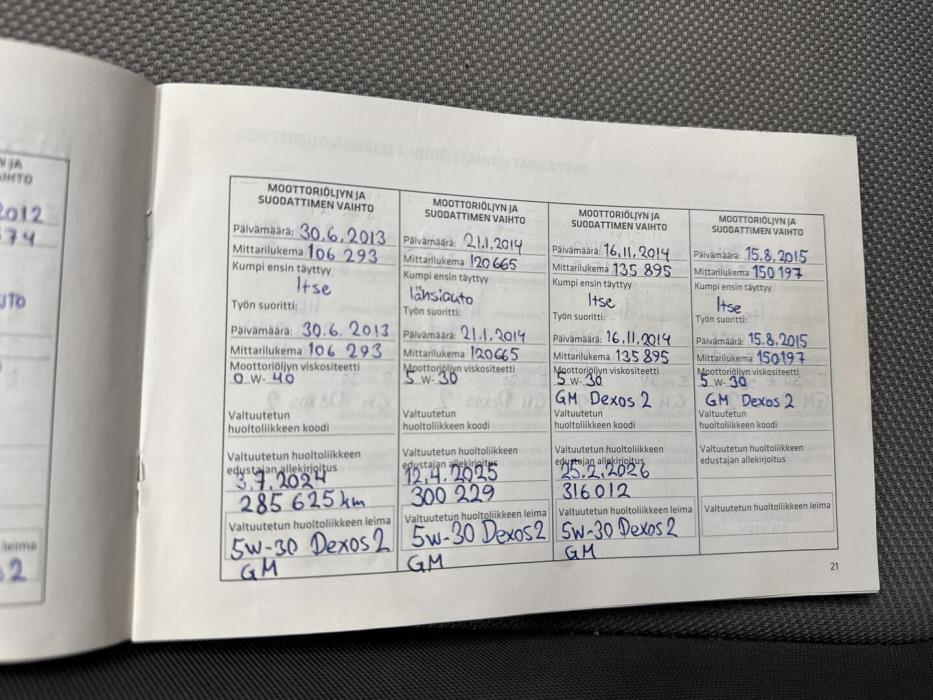 N JA
AIHTO
2012
574
UTO
leima
2
MOOTTORIÖLJYN JA
SUODATTIMEN VAIHTO
Päivämäärä: 30.6.2013
Mittarilukema 106 293
Kumpi ensin täyttyy
Itse
Työn suoritti:
Päivämäärä: 30.6.2013
Mittarilukema 106 293
Moottoriöljyn viskositeetti
0 W- 40
Valtuutetun
huoltoliikkeen koodi
Valtuutetun huoltoliikkeen
edustajan allekirjoitus
3.7.2024
285 625 km
Valtuutetun huoltoliikkeen leima
5w-30 Dexos2
GM
MOOTTORIÖLJYN JA
SUODATTIMEN VAIHTO
Päivämäärä: 21.1.2014
Mittarilukema 120665
Kumpi ensin täyttyy
lähsiauto
Työn suoritti:
Päivämäärä: 21.1.2014
Mittarilukema 120665
Moottoriöljyn viskositeetti
5 W-30
Valtuutetun
huoltoliikkeen koodi
Valtuutetun huoltoliikkeen
edustajan allekirjoitus
12.4.2025
300 229
Valtuutetun huoltoliikkeen leima
5w-30 Dexos2
GM
MOOTTORIÖLJYN JA
SUODATTIMEN VAIHTO
Päivämäärä: 16.11.2014
Mittarilukema 135 895
Kumpi ensin täyttyy
Itse
Työn suoritti:
Päivämäärä: 16.11.2014
Mittarilukema 135 895
Moottoriöljyn viskositeetti
5 W-30
GM Dexos 2
Valtuutetun
huoltoliikkeen koodi
Valtuutetun huoltoliikkeen
edustajan allekirjoitus
25.2.2026
316012
Valtuutetun huoltoliikkeen leima
5w-30 Dexos2
GM
MOOTTORIÖLJYN JA
SUODATTIMEN VAIHTO
Päivämäärä: 15.8.2015
Mittarilukema 150 197
Kumpi ensin täyttyy
Itse
Työn suoritti:
Päivämäärä: 15.8.2015
Mittarilukema 150197
Moottoriöljyn viskositeetti
5 W-30
GM Dexos 2
Valtuutetun
huoltoliikkeen koodi
Valtuutetun huoltoliikkeen
edustajan allekirjoitus
Valtuutetun huoltoliikkeen leima
21